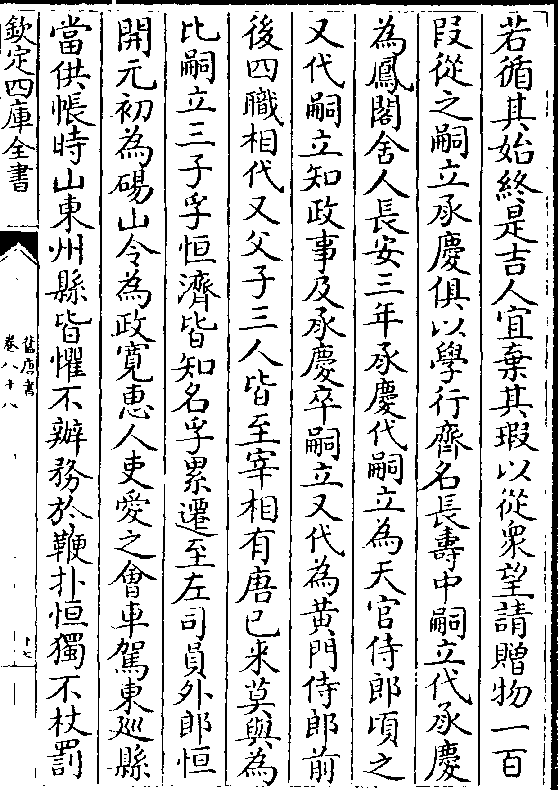 若循其始終是吉人宜棄其瑕以從衆望請贈物一百
段從之嗣立承慶俱以學行齊名長壽中嗣立代承慶
為鳳閣舍人長安三年承慶代嗣立為天官侍郎頃之
又代嗣立知政事及承慶卒嗣立又代為黄門侍郎前
後四職相代又父子三人皆至宰相有唐已来莫與為
比嗣立三子孚恒濟皆知名孚累遷至左司員外郎恒
開元初為碭山令為政寛恵人吏愛之會車駕東廵縣
當供帳時山東州縣皆懼不辦務於鞭扑恒獨不杖罰
欽定四庫全書
舊唐書
卷八十八
十七